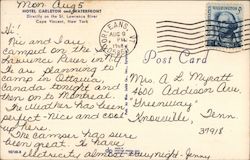 Mon Aug 5
HOTEL CARLETON and WATERFRONT
Directly on the St. Lawrence River
Cape Vincent, New York
Hi!
Nic and I are
camped on the St.
Lawrence River in N.Y.
We are planning to
camp in Ottawa
Canada tonight and
then on to Montreal.
The weather has been
perfect - nice and cool
up here.
The camper has been
great. We have
electricity almost every night - Jenny
ORLEANS
AUG
PM
1968
Post Card
Mrs. A L Myatt
4600 Addison Ave.
"Greenway"
Knoxville, Tenn.
37918